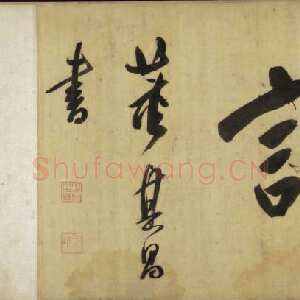 言
董其昌
書
Shufawang.CN